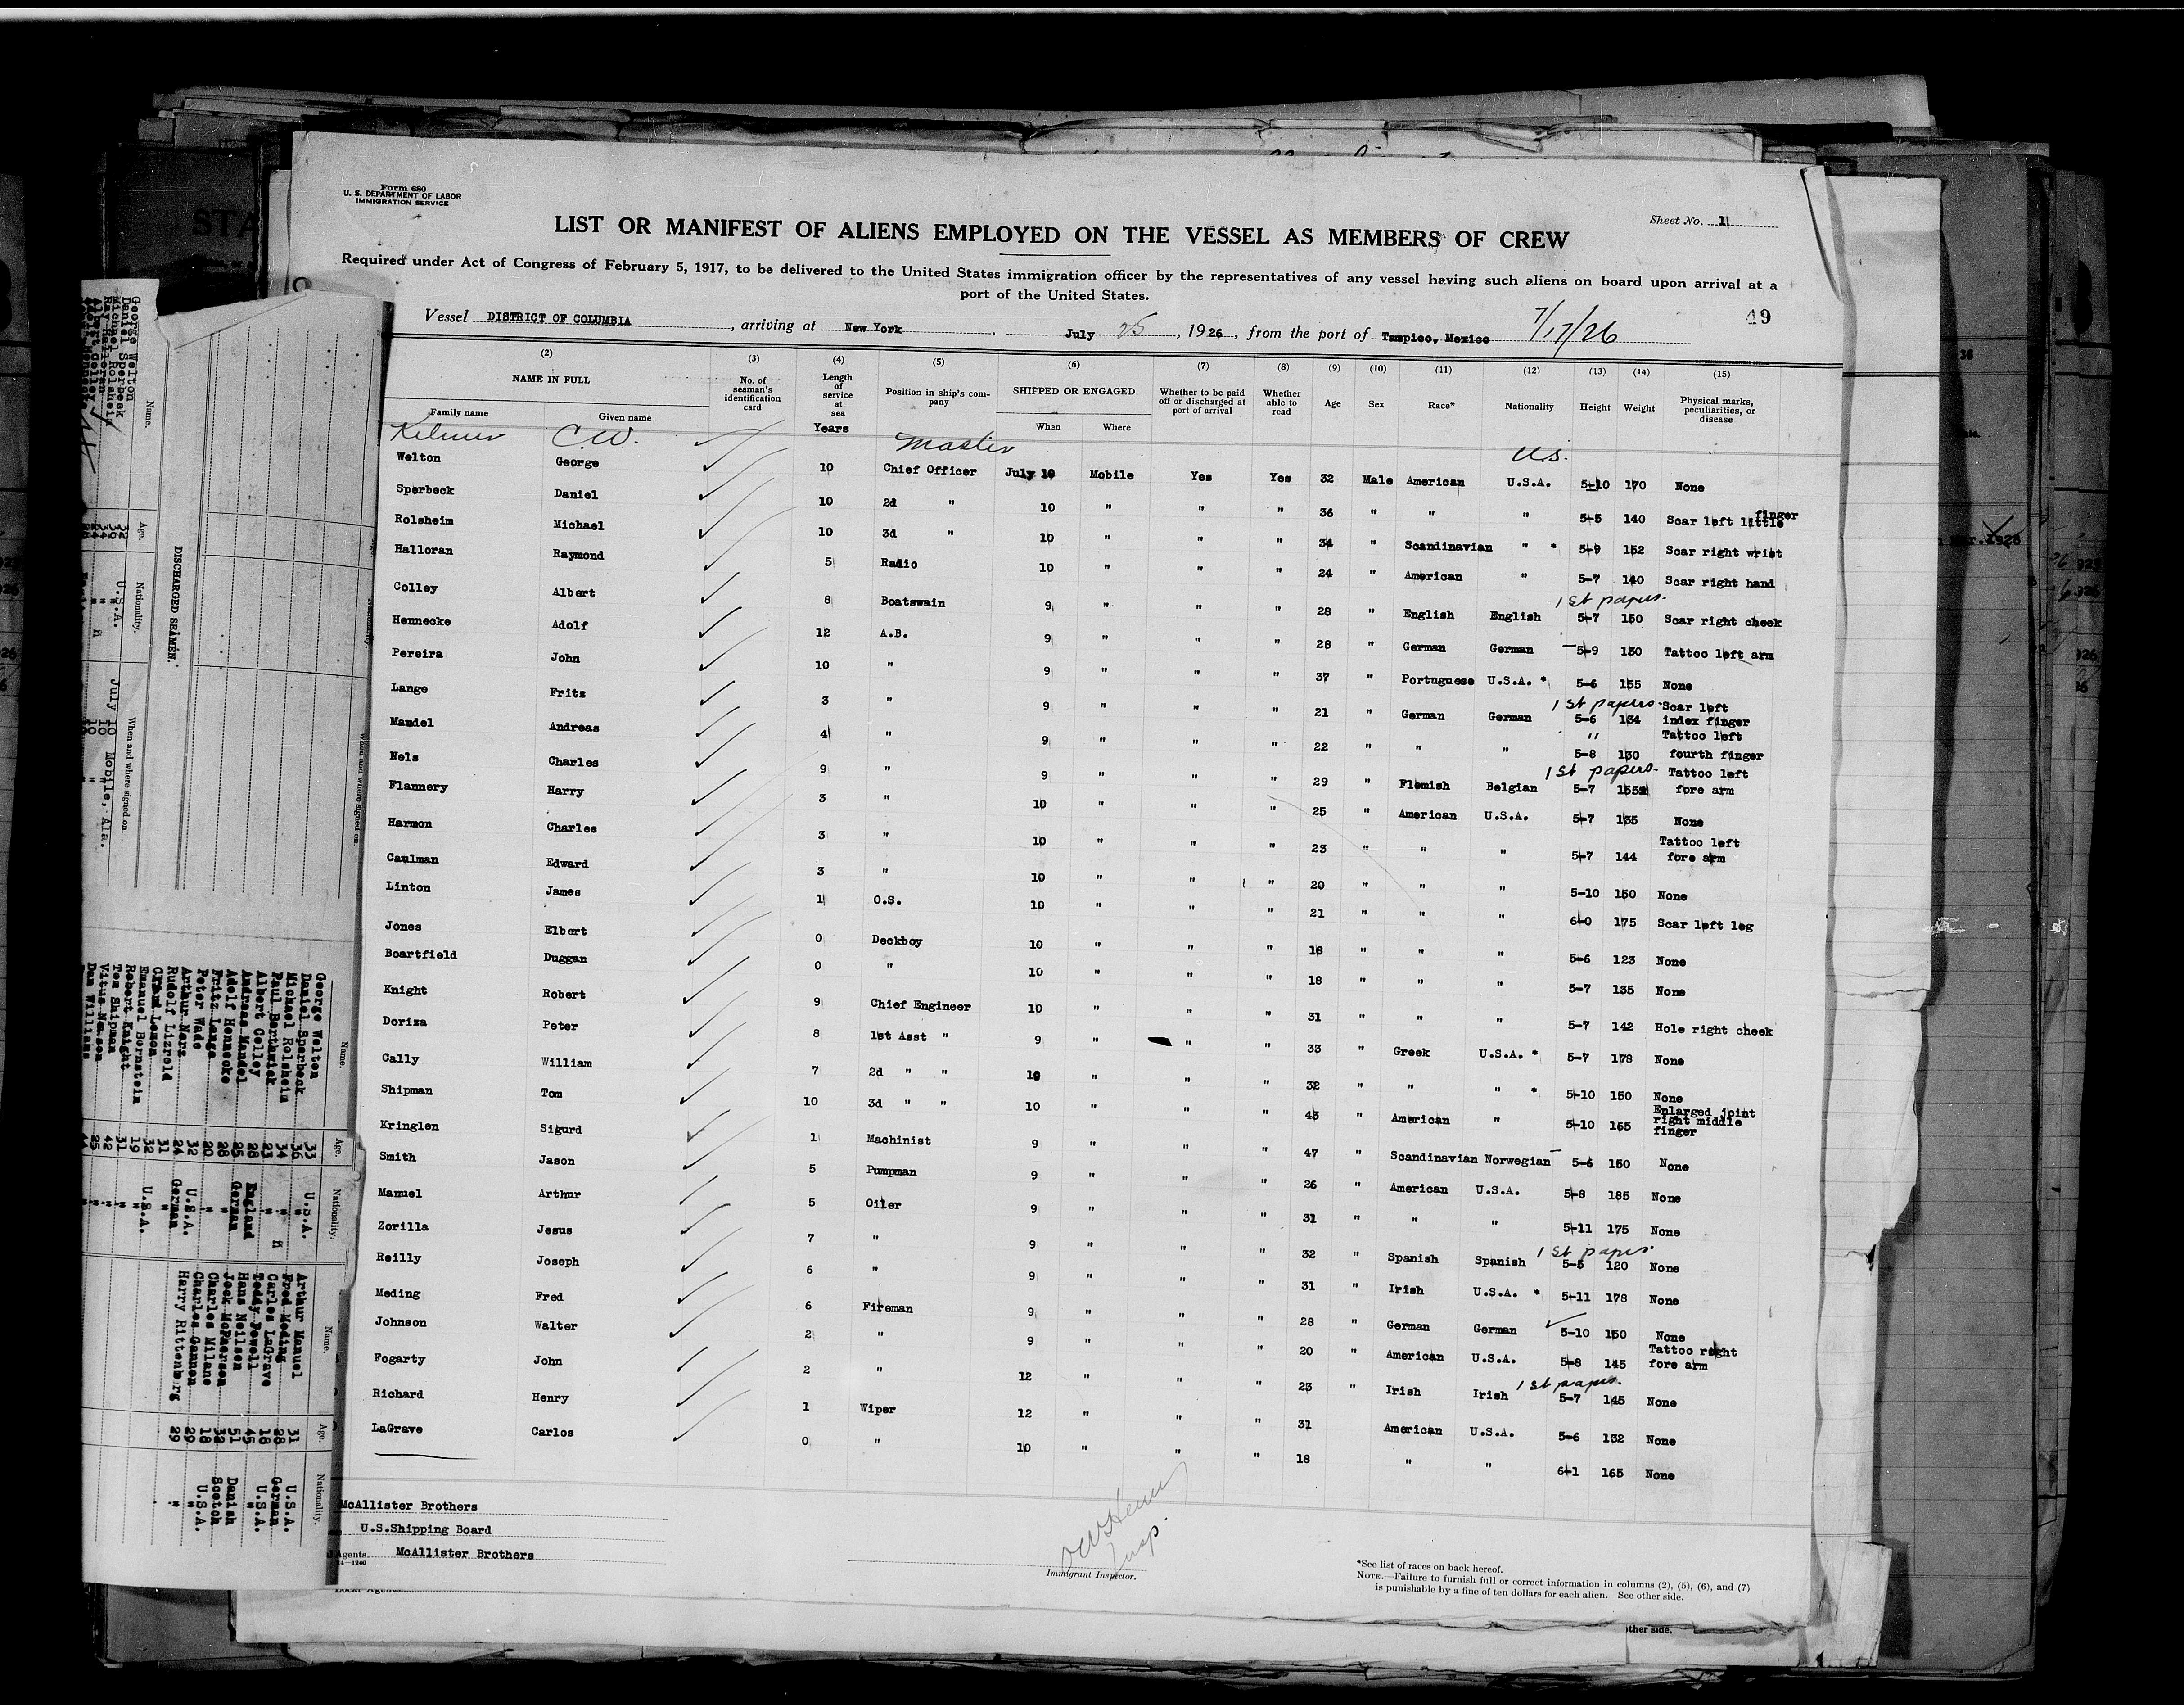 Form 680
U. S. DEPARTMENT OF LABOR
IMMIGRATION SERVICE
Sheet No. 1
LIST OR MANIFEST OF ALIENS EMPLOYED ON THE VESSEL AS MEMBERS OF CREW
Required under Act of Congress of February 5, 1917, to be delivered to the United States immigration officer by the representatives of any vessel having such aliens on board upon arrival at a
port of the United States.
Vessel DISTRICT OF COLUMBIA, arriving at New York, July 25, 1926, from the port of Tampico, Mexico 7/17/26
49
(2) (3) (4) (5) (6) (7) (8) (9) (10) (11) (12) (13) (14) (15)
NAME IN FULL No. of seaman's identification card Length of service at sea Position in ship's company SHIPPED OR ENGAGED Whether to be paid off or discharged at port of arrival Whether able to read Age Sex Race* Nationality Height Weight Physical marks, peculiarities, or disease
Family name Given name Years When Where
C.W. Master U.S.
Welton George 10 Chief Officer July 10 Mobile Yes Yes 32 Male American U.S.A. 5-10 170 None
Sperbeck Daniel 10 2d " 10 " " " 36 " " " 5-5 140 Scar left little finger
Rolsheim Michael 10 3d " 10 " " " 34 " Scandinavian " * 5-9 152 Scar right wrist
Halloran Raymond 5 Radio 10 " " " 24 " American " 5-7 140 Scar right hand
Colley Albert 8 Boatswain 9 " " " 28 " English English 1st papers. 5-7 150 Scar right cheek
Hennecke Adolf 12 A.B. 9 " " " 28 " German German 5-9 130 Tattoo left arm
Pereira John 10 " 9 " " " 37 " Portuguese U.S.A. * 5-6 155 None
Lange Fritz 3 " 9 " " " 21 " German German 1st papers. 5-6 134 Scar left index finger
Mandel Andreas 4 " 9 " " " 22 " " " " 5-8 130 Tattoo left fourth finger
Nels Charles 9 " 9 " " " 29 " Flemish Belgian 1st papers. 5-7 155 Tattoo left fore arm
Flannery Harry 3 " 10 " " " 25 " American U.S.A. 5-7 135 None
Harmon Charles 3 " 10 " " " 23 " " " 5-7 144 Tattoo left fore arm
Caulman Edward 3 " 10 " " " 20 " " " 5-10 150 None
Linton James 1 O.S. 10 " " " 21 " " " 6-0 175 Scar left leg
Jones Elbert 0 Deckboy 10 " " " 18 " " " 5-6 123 None
Boartfield Duggan 0 " 10 " " " 18 " " " 5-7 135 None
Knight Robert 9 Chief Engineer 10 " " " 31 " " " 5-7 142 Hole right cheek
Doriza Peter 8 1st Asst " 9 " " " 33 " Greek U.S.A. * 5-7 178 None
Cally William 7 2d " " 10 " " " 32 " " " * 5-10 150 None
Shipman Tom 10 3d " " 10 " " " 43 " American " 5-10 165 Enlarged joint right middle finger
Kringlen Sigurd 1 Machinist 9 " " " 47 " Scandinavian Norwegian 5-6 150 None
Smith Jason 5 Pumpman 9 " " " 26 " American U.S.A. 5-8 185 None
Manuel Arthur 5 Oiler 9 " " " 31 " " " 5-11 175 None
Zorilla Jesus 7 " 9 " " " 32 " Spanish Spanish 1st paper. 5-5 120 None
Reilly Joseph 6 " 9 " " " 31 " Irish U.S.A. * 5-11 178 None
Meding Fred 6 Fireman 9 " " " 28 " German German 5-10 150 None
Johnson Walter 2 " 9 " " " 20 " American U.S.A. 5-8 145 Tattoo right fore arm
Fogarty John 2 " 12 " " " 23 " Irish Irish 1st paper. 5-7 145 None
Richard Henry 1 Wiper 12 " " " 31 American U.S.A. 5-6 132 None
LaGrave Carlos 0 " 10 " " " 18 " " 6-1 165 None
McAllister Brothers
U.S.Shipping Board
Agents McAllister Brothers
Insp.
Immigrant Inspector.
*See list of races on back hereof.
NOTE.—Failure to furnish full or correct information in columns (2), (5), (6), and (7)
is punishable by a fine of ten dollars for each alien. See other side.
other side.
DISCHARGED SEAMEN.
Name. Age. Nationality. When and where signed on.
George Welton 32 U.S.A. July 10 Mobile, Ala.
Daniel Sperbeck
Michael Rolsheim
Name. Age. Nationality.
George Welton 33 U.S.A.
Daniel Sperbeck 36 "
Michael Rolsheim 34 "
Paul Borthwick 23 "
Albert Colley 28 England
Andreas Mandel 25 German
Adolf Hennecke 28 "
Fritz Lange 20 "
Peter Wade 32 U.S.A.
Arthur Merz 24 German
Rudolf Lizreld 31 "
Emanuel Bornstein 19 "
Robert Knight 31 "
Tom Shipman 42 "
Dan Williams
Name. Age. Nationality.
Arthur Manuel 31 U.S.A.
Fred Meding 28 German
Carlos LaGrave 18 U.S.A.
Teddy Powell 45 "
Hans Neilsen 51 Danish
Jock McPherson 32 Scotch
Charles Milane 18 U.S.A.
Charles Gannon 29 "
Harry Rittenberg 29 "